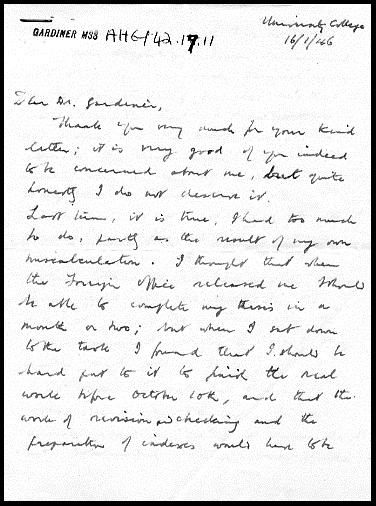 University College
GARDINER MSS AHG/42.17.11
16/1/46
Dear Dr. Gardiner,
Thank you very much for your kind
letter; it is very good of you indeed
to be concerned about me, but quite
honestly I do not deserve it.
Last term, it is true, I had too much
to do, partly as the result of my own
miscalculation. I thought that when
the Foreign Office released me I should
be able to complete my thesis in a
month or two; but when I sat down
to the task I found that I should be
hard put to it to finish the real
work before October 10th, and that the
work of revision and checking and the
preparation of indexes would have to be